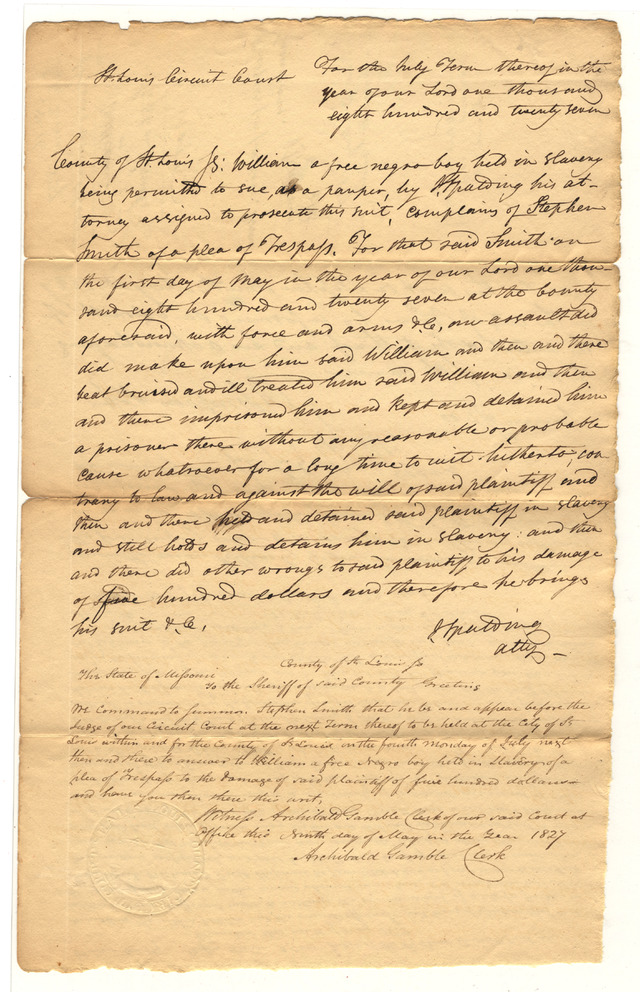 St. Louis Circuit Court
For the July Term thereof in the
year of our Lord one thousand
eight hundred and twenty seven
County of St. Louis Js: William a free negro boy held in slavery
being permitted to sue, as a pauper, by J. Spalding his at-
torney assigned to prosecute this suit, complains of Stephen
Smith of a plea of Trespass. For that said Smith on
the first day of May in the year of our Lord one thou-
sand eight hundred and twenty seven at the County
aforesaid, with force and arms &c, an assault did
did make upon him said William and then and there
beat bruised and ill treated him said William and then
and there imprisoned him and kept and detained him
a prisoner there without any reasonable or probable
cause whatsoever for a long time to wit hitherto, con-
trary to law and against the will of said plaintiff and
then and there held and detained said plaintiff in slavery
and still holds and detains him in slavery: and then
and there did other wrongs to said plaintiff to his damage
of five hundred dollars and therefore he brings
his suit &c.
J Spalding
atty
County of St Louis Js
The State of Missouri
To the Sheriff of said County Greeting
We Command to summon Stephen Smith that he be and appear before the
Judge of our Circuit Court at the next Term thereof to be held at the City of St
Louis within and for the County of St Louis on the fourth Monday of July next
then and there to answer to William a free Negro boy held in Slavery of a
plea of Trespass to the damage of said plaintiff of five hundred dollars
and have you then there this writ,
Witness Archibald Gamble Clerk of our said Court at
Office this Ninth day of May in the Year 1827
Archibald Gamble Clerk